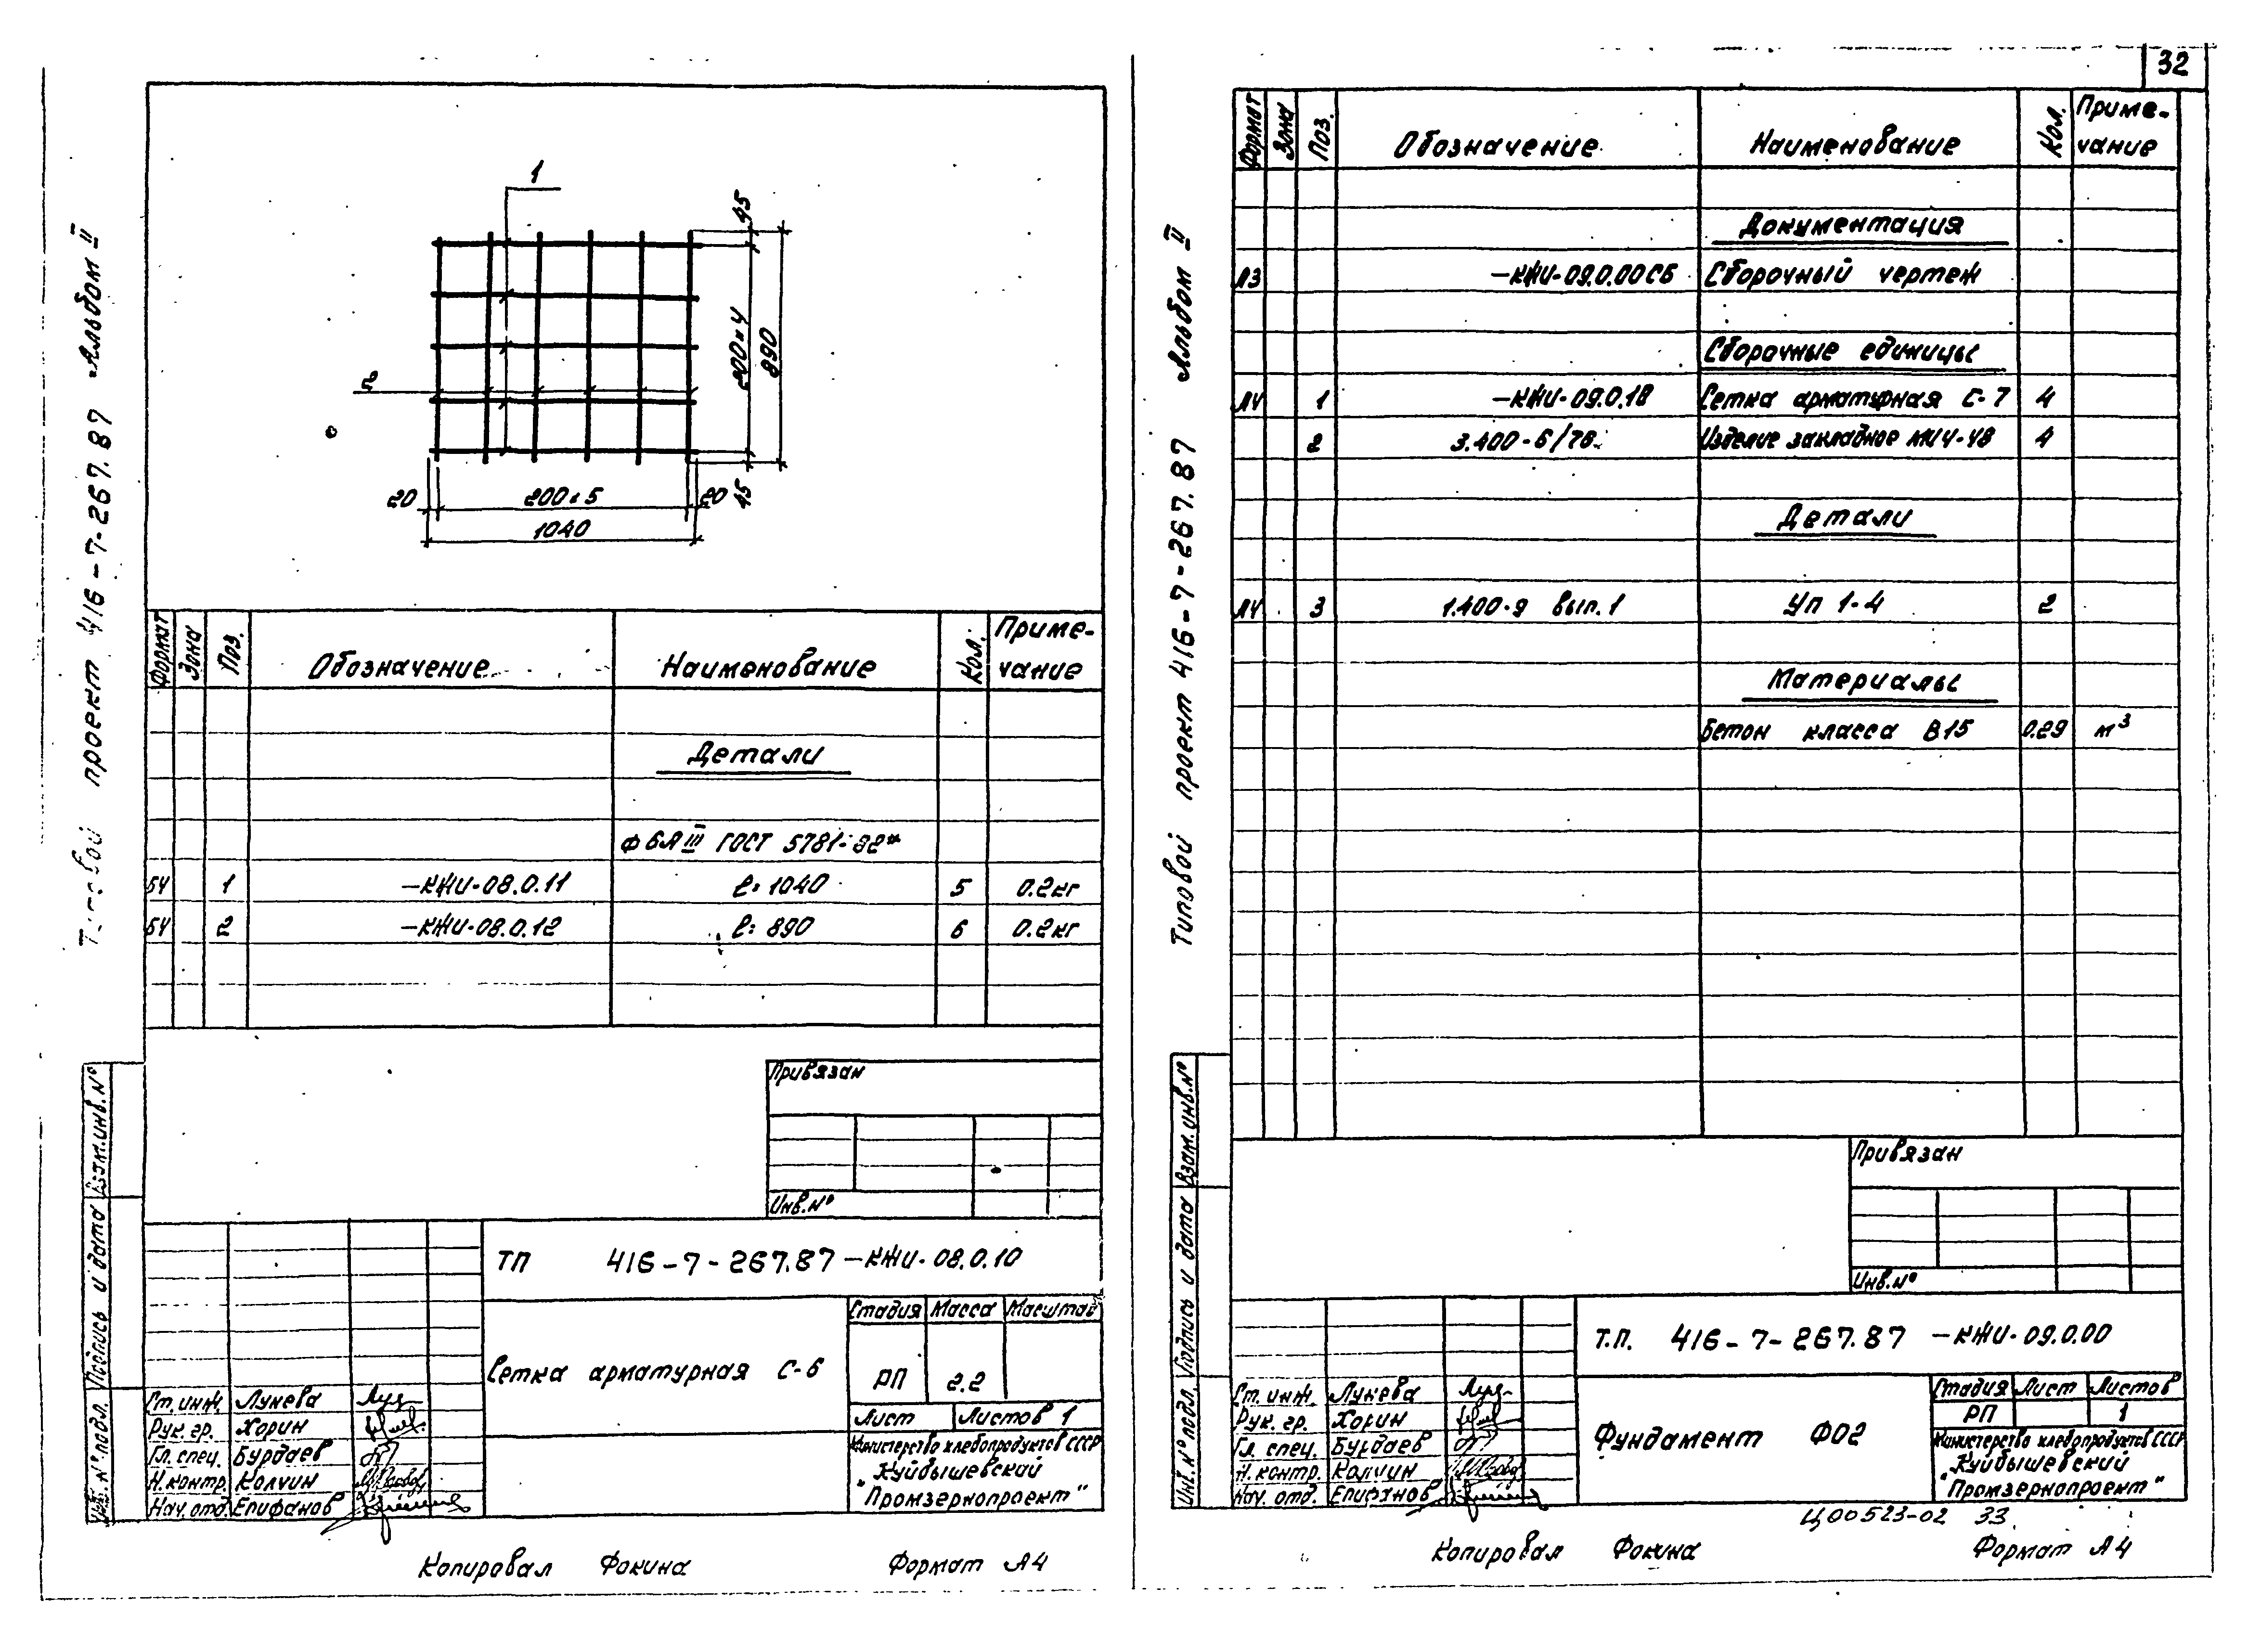 32
Типовой проект 416-7-267.87 Альбом II
1
2
45
200×4
890
45
20
200×5
20
1040
Формат Зона Поз. Обозначение Наименование Кол. Приме-
чание
Детали
Ф 6АIII ГОСТ 5781-82*
БЧ 1 -КЖИ-08.0.11 ℓ=1040 5 0.2кг
БЧ 2 -КЖИ-08.0.12 ℓ=890 6 0.2кг
Привязан
Инв.№
Взам.инв.№
Подпись и дата
Инв.№ подл.
ТП 416-7-267.87-КЖИ-08.0.10
Сетка арматурная С-6
Стадия Масса Масштаб
РП 2.2
Лист Листов 1
Министерство хлебопродуктов СССР
Куйбышевский
"Промзернопроект"
Ст. инж. Лунева
Рук. гр. Хорин
Гл. спец. Бурдаев
Н.контр. Колчин
Нач. отд. Епифанов
Копировал Фокина Формат А4
Типовой проект 416-7-267.87 Альбом II
Формат Зона Поз. Обозначение Наименование Кол. Приме-
чание
Документация
А3 -КЖИ-09.0.00СБ Сборочный чертеж
Сборочные единицы
А4 1 -КЖИ-09.0.18 Сетка арматурная С-7 4
2 3.400-6/76 Изделие закладное МИ4-48 4
Детали
А4 3 1.400-9 вып.1 УП 1-4 2
Материалы
Бетон класса В15 0.29 м³
Привязан
Инв.№
Взам.инв.№
Подпись и дата
Инв.№ подл.
Т.П. 416-7-267.87 -КЖИ-09.0.00
Фундамент Ф02
Стадия Лист Листов
РП 1
Министерство хлебопродуктов СССР
Куйбышевский
"Промзернопроект"
Ст. инж. Лунева
Рук. гр. Хорин
Гл. спец. Бурдаев
Н. контр. Колчин
Нач. отд. Епифанов
Ц00523-02 33
Копировал Фокина Формат А4